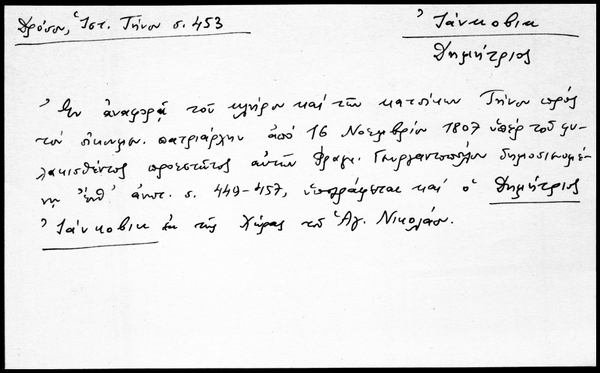 Δρόσου, Ἱστ. Τήνου σ. 453
Ἰάνκοβικ
Δημήτριος
Ἐν ἀναφορᾷ τοῦ κλήρου καὶ τῶν κατοίκων Τήνου πρὸς
τὸν οἰκουμ. πατριάρχην ἀπὸ 16 Νοεμβρίου 1807 ὑπὲρ τοῦ φυ-
λακισθέντος προεστῶτος αὐτῶν Φραγκ. Γεωργαντοπούλου δημοσιευομέ-
νῃ ἐνθ' ἀνωτ. σ. 449-457, ὑπογράφεται καὶ ὁ Δημήτριος
Ἰάνκοβικ ἐκ τῆς Χώρας τοῦ Ἁγ. Νικολάου.